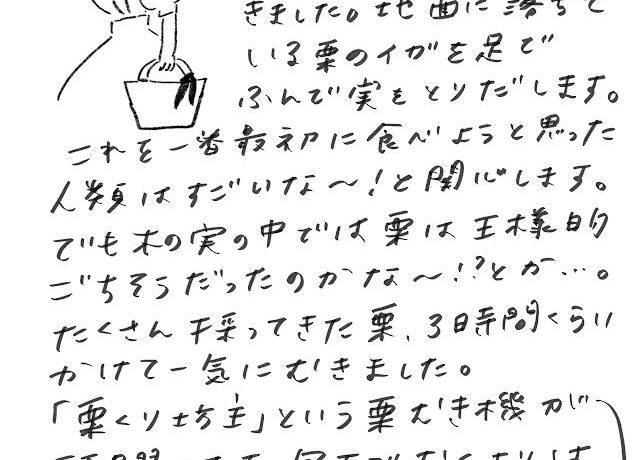 きました。地面に落ちて
いる栗のイガを足で
ふんで実をとりだします。
これを一番最初に食べようと思った
人類はすごいな〜!と関心します。
でも木の実の中では栗は王様的
ごちそうだったのかな〜!?とか…。
たくさん採ってきた栗、3時間くらい
かけて一気にむきました。
「栗くり坊主」という栗むき機が